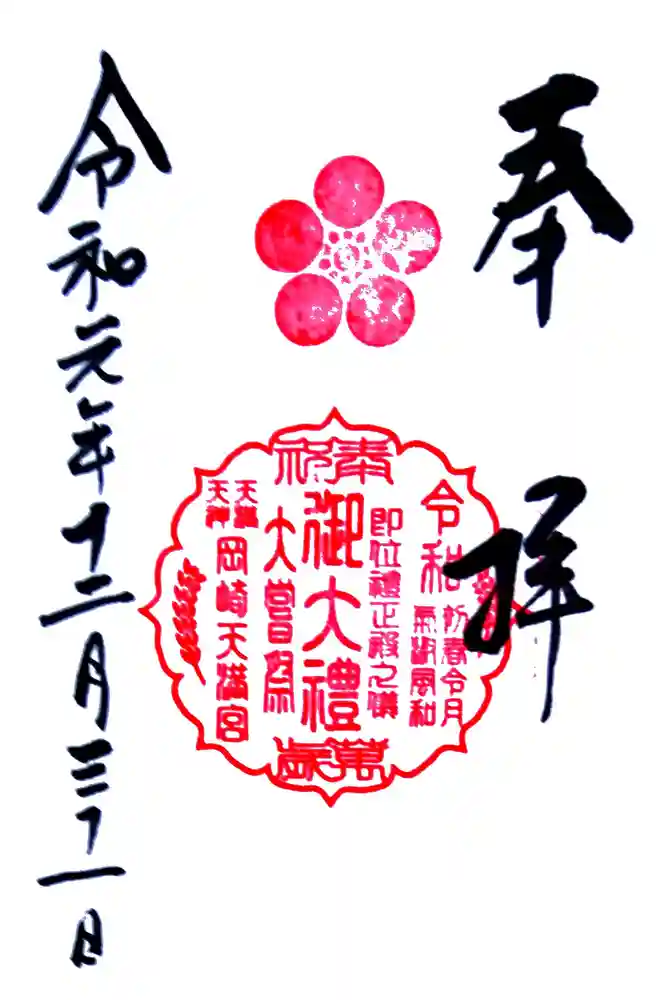 奉拝
奉祝
令和
初春令月
氣淑風和
即位禮正殿之儀
御大禮
大嘗祭
天満
天神
岡崎天満宮
萬歳
令和元年十二月三十一日